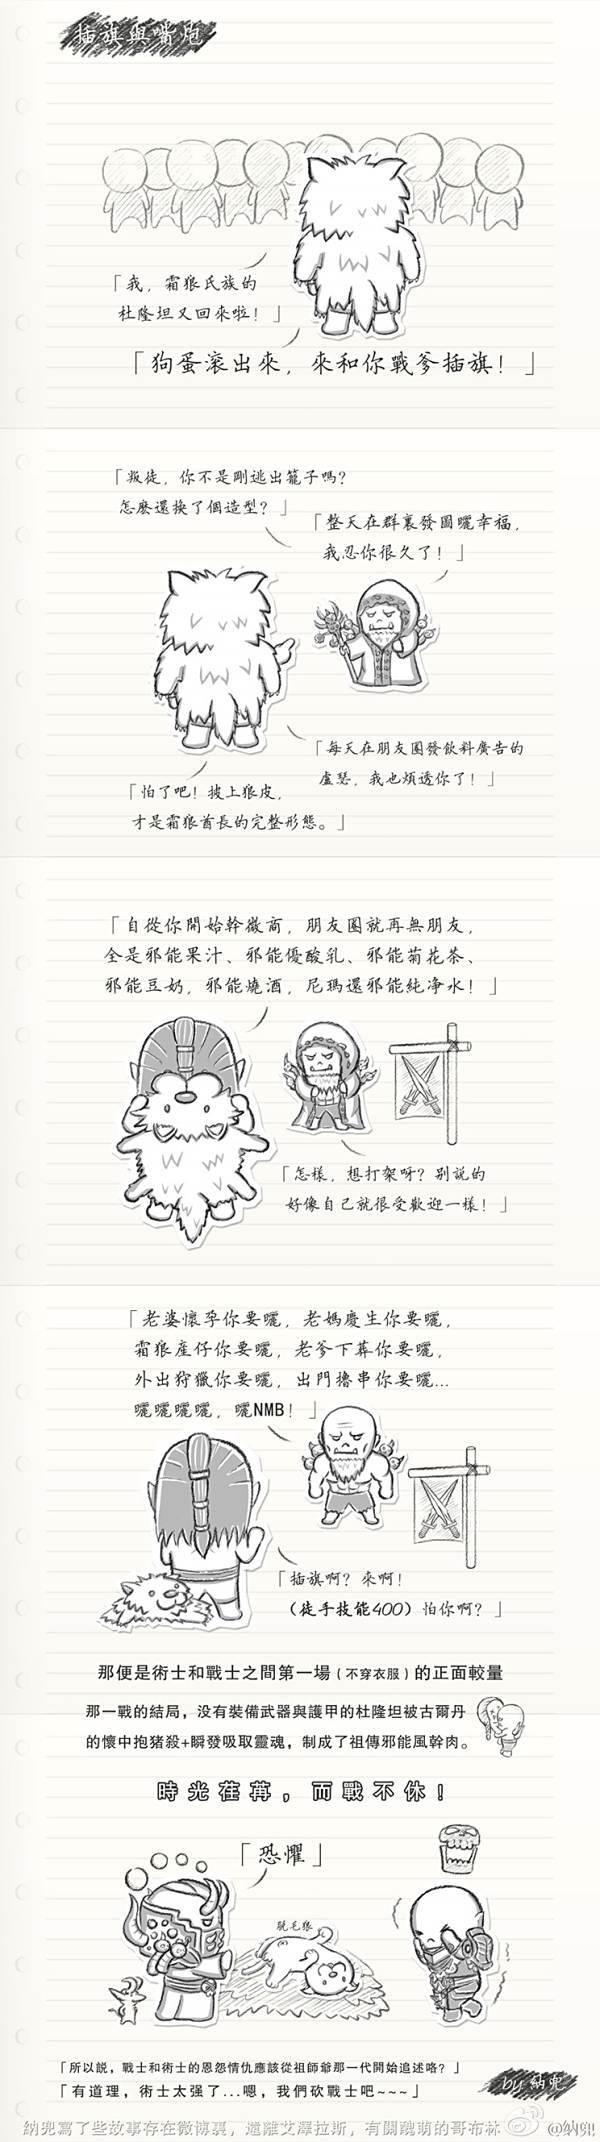 插旗與嘴炮
「我，霜狼氏族的
杜隆坦又回來啦！」
「狗蛋滾出來，來和你戰爹插旗！」
「叛徒，你不是剛逃出籠子嗎？
怎麽還換了個造型？」
「整天在群裏發圖曬幸福，
我忍你很久了！」
「每天在朋友圈發飲料廣告的
盧瑟，我也煩透你了！」
「怕了吧！披上狼皮，
才是霜狼酋長的完整形態。」
「自從你開始幹微商，朋友圈就再無朋友，
全是邪能果汁、邪能優酸乳、邪能菊花茶、
邪能豆奶，邪能燒酒，尼瑪還邪能純净水！」
「怎樣，想打架呀？别説的
好像自己就很受歡迎一樣！」
「老婆懷孕你要曬，老媽慶生你要曬，
霜狼産仔你要曬，老爹下葬你要曬，
外出狩獵你要曬，出門擼串你要曬...
曬曬曬曬，曬NMB！」
「插旗啊？來啊！
（徒手技能400）怕你啊？」
那便是術士和戰士之間第一場（不穿衣服）的正面較量
那一戰的結局，没有裝備武器與護甲的杜隆坦被古爾丹
的懷中抱猪殺+瞬發吸取靈魂，制成了祖傳邪能風幹肉。
時光荏苒，而戰不休！
「恐懼」
脱毛狼
「所以説，戰士和術士的恩怨情仇應該從祖師爺那一代開始追述咯？」
「有道理，術士太强了...嗯，我們砍戰士吧~~~」
by 納兜
納兜寫了些故事存在微博裏，遠離艾澤拉斯，有關醜萌的哥布林
@納兜